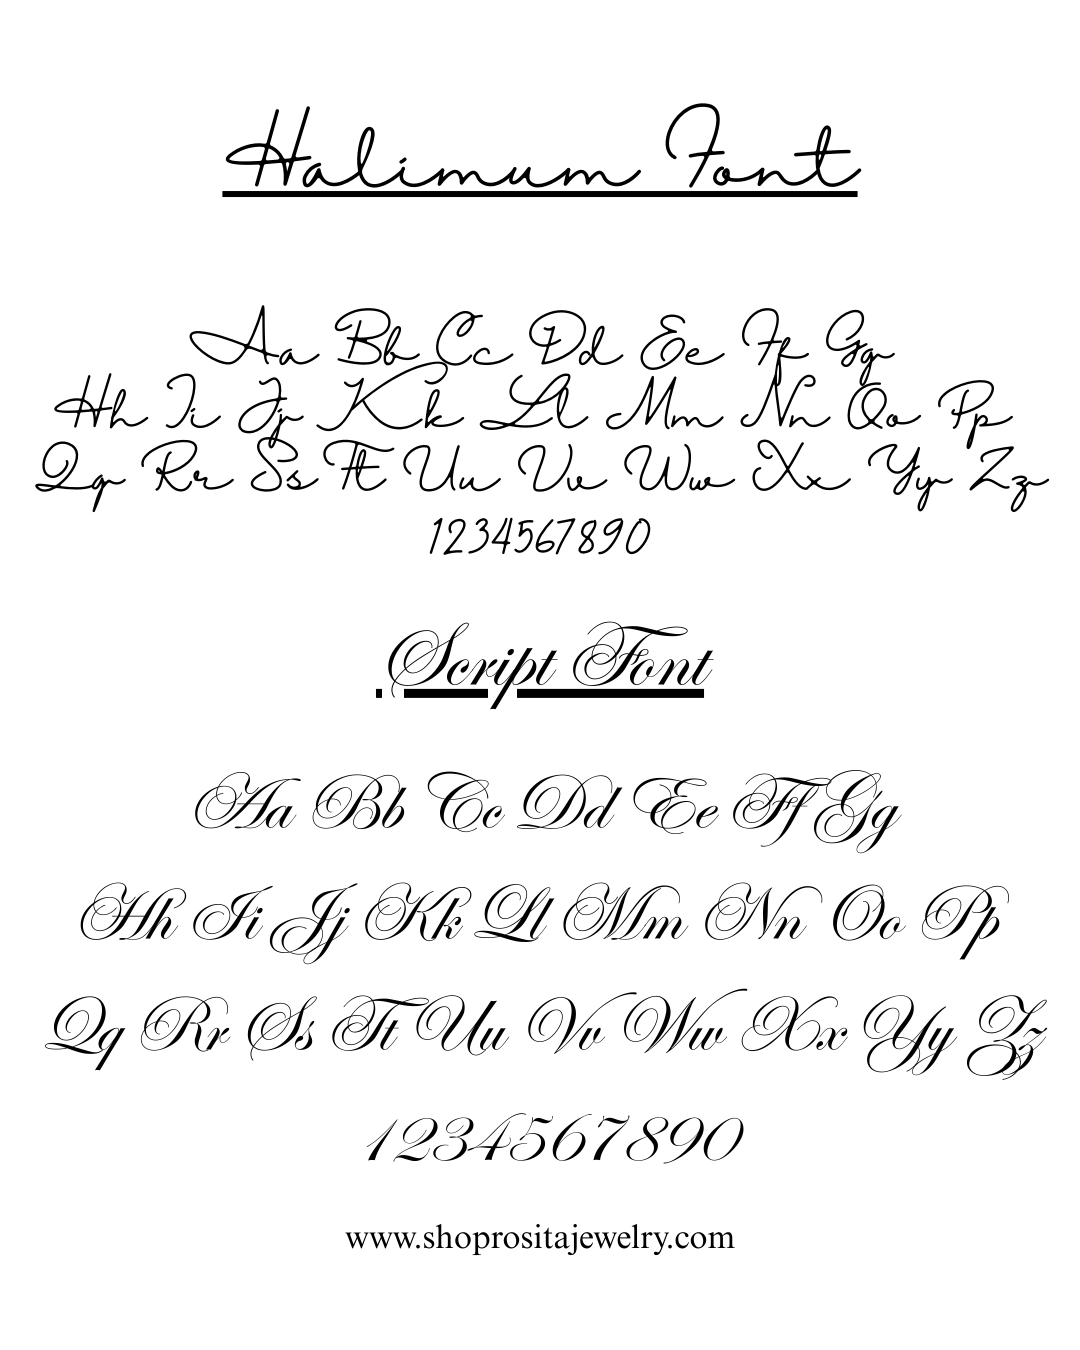 Halimum Font
Aa Bb Cc Dd Ee Ff Gg
Hh Ii Jj Kk Ll Mm Nn Oo Pp
Qq Rr Ss Tt Uu Vv Ww Xx Yy Zz
1234567890
Script Font
Aa Bb Cc Dd Ee Ff Gg
Hh Ii Jj Kk Ll Mm Nn Oo Pp
Qq Rr Ss Tt Uu Vv Ww Xx Yy Zz
1234567890
www.shoprositajewelry.com